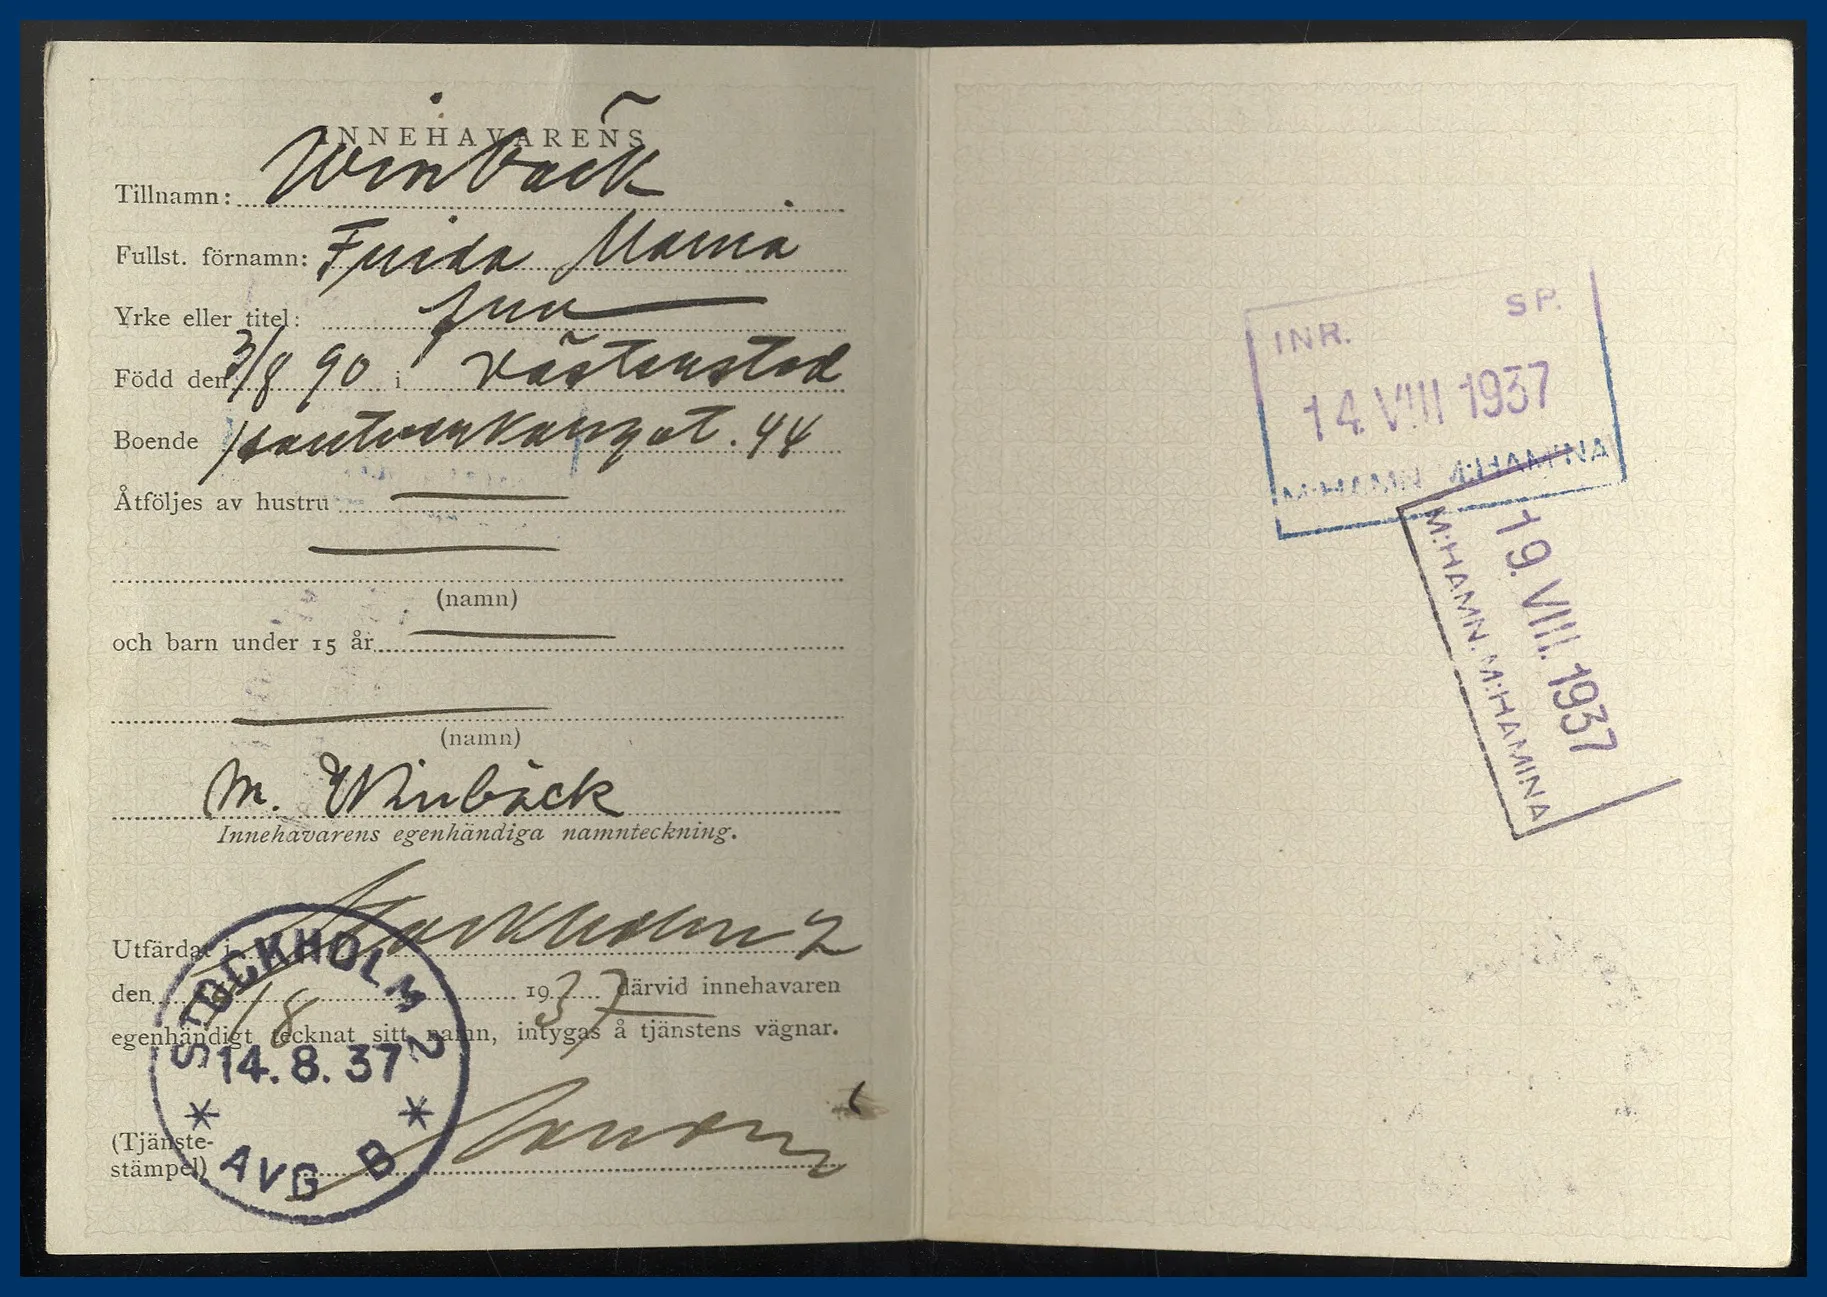 INNEHAVARENS
Tillnamn: Winbäck
Fullst. förnamn: Frida Maria
Yrke eller titel: fru
Född den 3/8 90 i Västerstad
Boende Hantverkargat. 44
Åtföljes av hustru
(namn)
och barn under 15 år
(namn)
M. Winbäck
Innehavarens egenhändiga namnteckning.
Utfärdat i Stockholm 2
den 14/8 1937 därvid innehavaren
egenhändigt tecknat sitt namn, intygas å tjänstens vägnar.
(Tjänste-
stämpel)
STOCKHOLM 2
14.8.37
* AVG B *
INR. SP.
14.VIII 1937
M:HAMN M:HAMINA
19.VIII.1937
M:HAMN. M:HAMINA